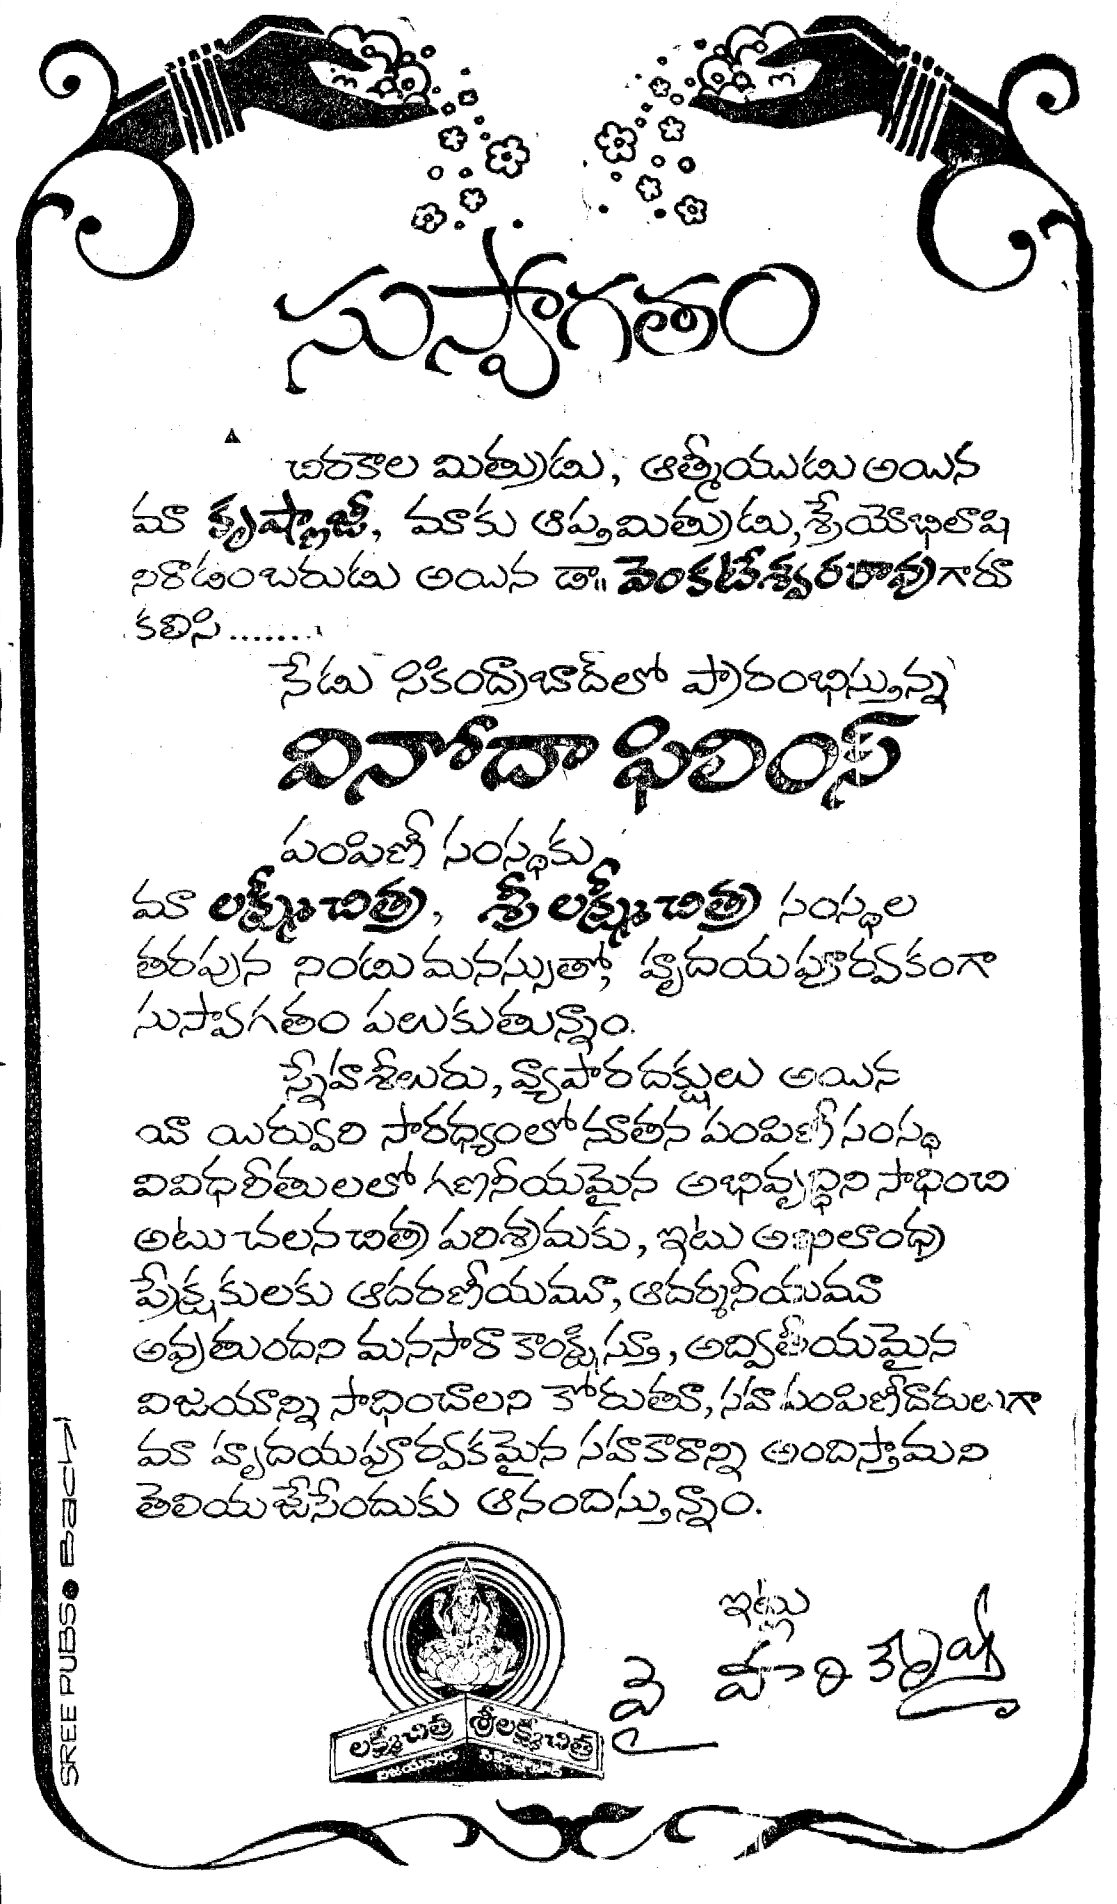 సుస్వాగతం
చిరకాల మిత్రుడు, ఆత్మీయుడు అయిన
మా కృష్ణాజీ, మాకు ఆప్తమిత్రుడు, శ్రేయోభిలాషి
నిరాడంబరుడు అయిన డా॥ వెంకటేశ్వరరావు గారూ
కలిసి.......
నేడు సికింద్రాబాద్‌లో ప్రారంభిస్తున్న
వినోదా ఫిలింస్
పంపిణీ సంస్థకు
మా లక్ష్మీచిత్ర, శ్రీ లక్ష్మీచిత్ర సంస్థల
తరపున నిండు మనస్సుతో, హృదయపూర్వకంగా
సుస్వాగతం పలుకుతున్నాం.
స్నేహశీలురు, వ్యాపారదక్షులు అయిన
యీ యిర్వురి సారధ్యంలో నూతన పంపిణీ సంస్థ
వివిధరీతులలో గణనీయమైన అభివృద్ధిని సాధించి
అటు చలనచిత్ర పరిశ్రమకు, ఇటు అఖిలాంధ్ర
ప్రేక్షకులకు ఆదరణీయమూ, ఆదర్శనీయమూ
అవుతుందని మనసారా కాంక్షిస్తూ, అద్వితీయమైన
విజయాన్ని సాధించాలని కోరుతూ, సహ పంపిణీదారులుగా
మా హృదయపూర్వకమైన సహకారాన్ని అందిస్తామని
తెలియజేసేందుకు ఆనందిస్తున్నాం.
ఇట్లు
వై హరి కృష్ణ
లక్ష్మీచిత్ర శ్రీలక్ష్మీచిత్ర
విజయవాడ సికింద్రాబాద్
SREE PUBS Bachi